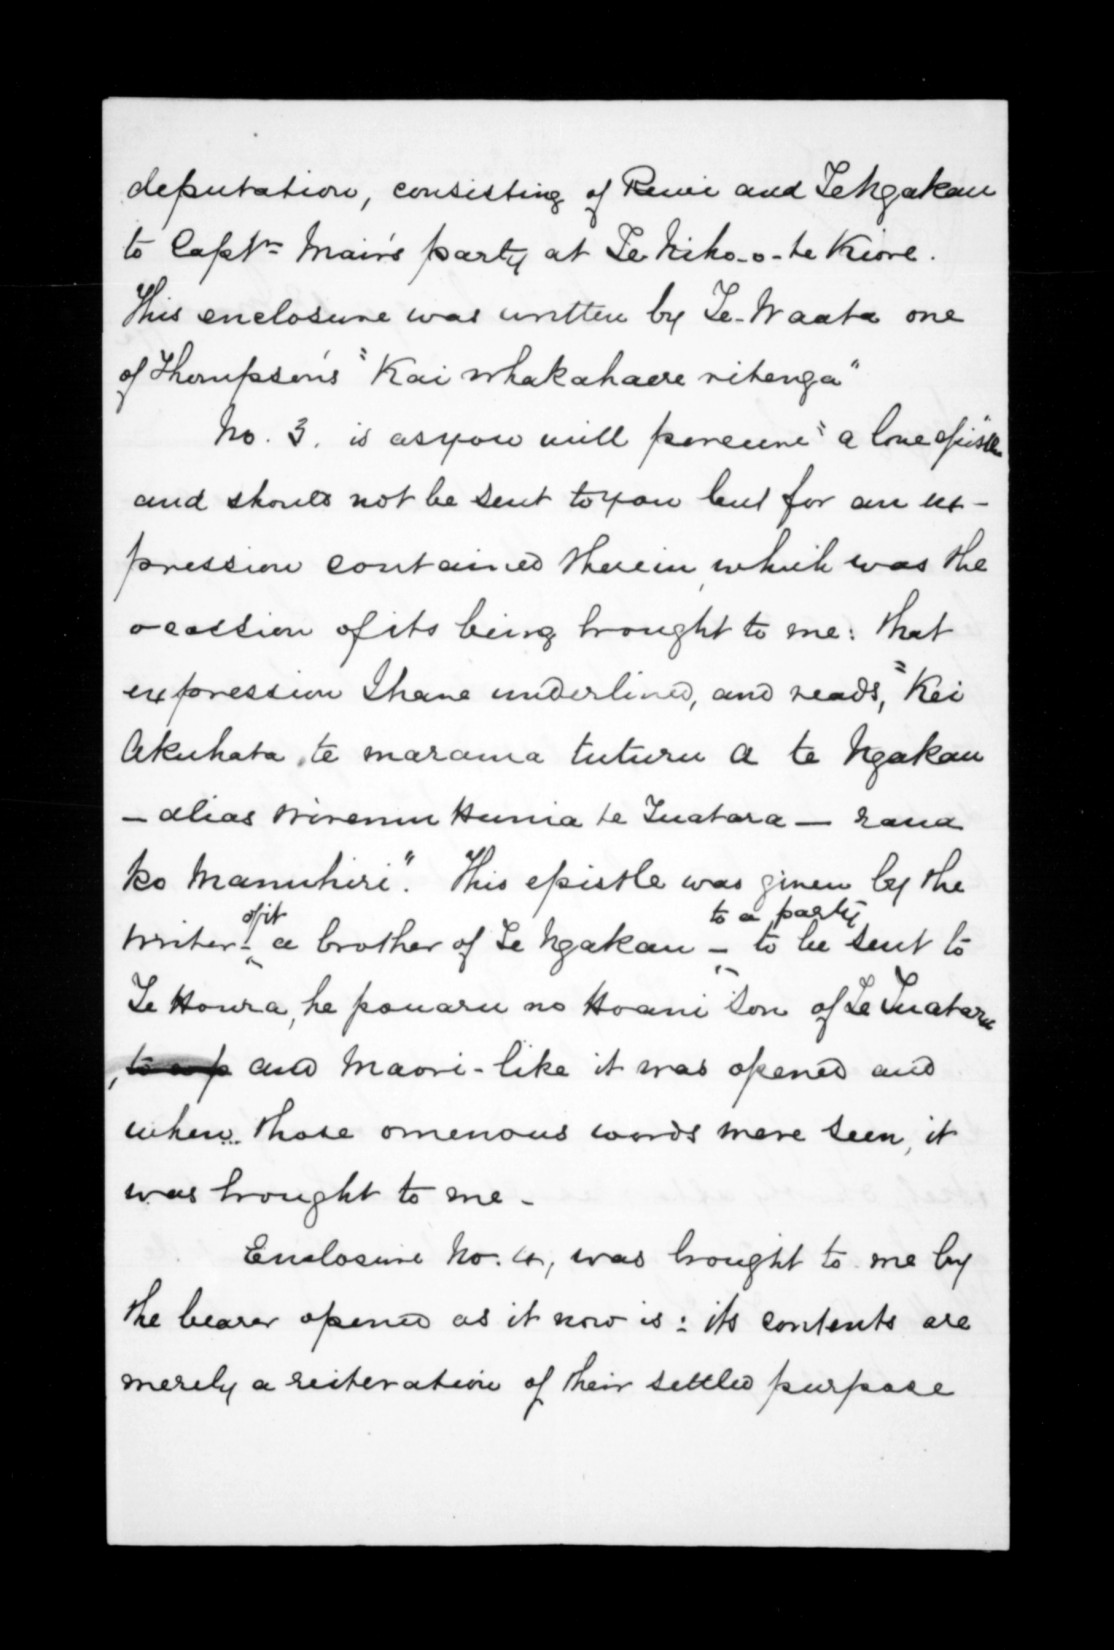 deputation, consisting of Rewi and Te Ngakau
to Captn Mair's party at Te Niho-o-te Kiore.
This enclosure was written by Te-Waata one
of Thompson's "Kai whakahaere ritenga"
No. 3. is as you will perceive "a love epistle"
and should not be sent to you but for an ex-
pression contained therein, which was the
ocassion of its being brought to me: that
expression I have underlined, and reads, "Kei
Akuhata, te marama tuturu a te Ngakau
- alias Wiremu Hunia te Tuatara - raua
ko Manuhiri". This epistle was given by the
writer of it - a brother of Te Ngakau - to a party to be sent to
Te Houra, he pouaru no Hoani son of Te Tuatara
, to a p and Maori-like it was opened and
when those omenous words were seen, it
was brought to me -
Enclosure No. 4, was brought to me by
the bearer opened as it now is: its contents are
merely a reiteration of their settled purpose